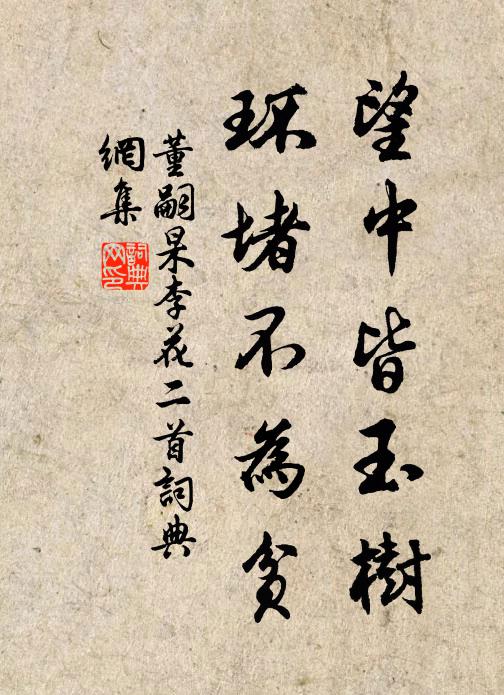 望中皆玉樹
环堵不為貧
董嗣杲李花二首詞典
網集
詞典
网印